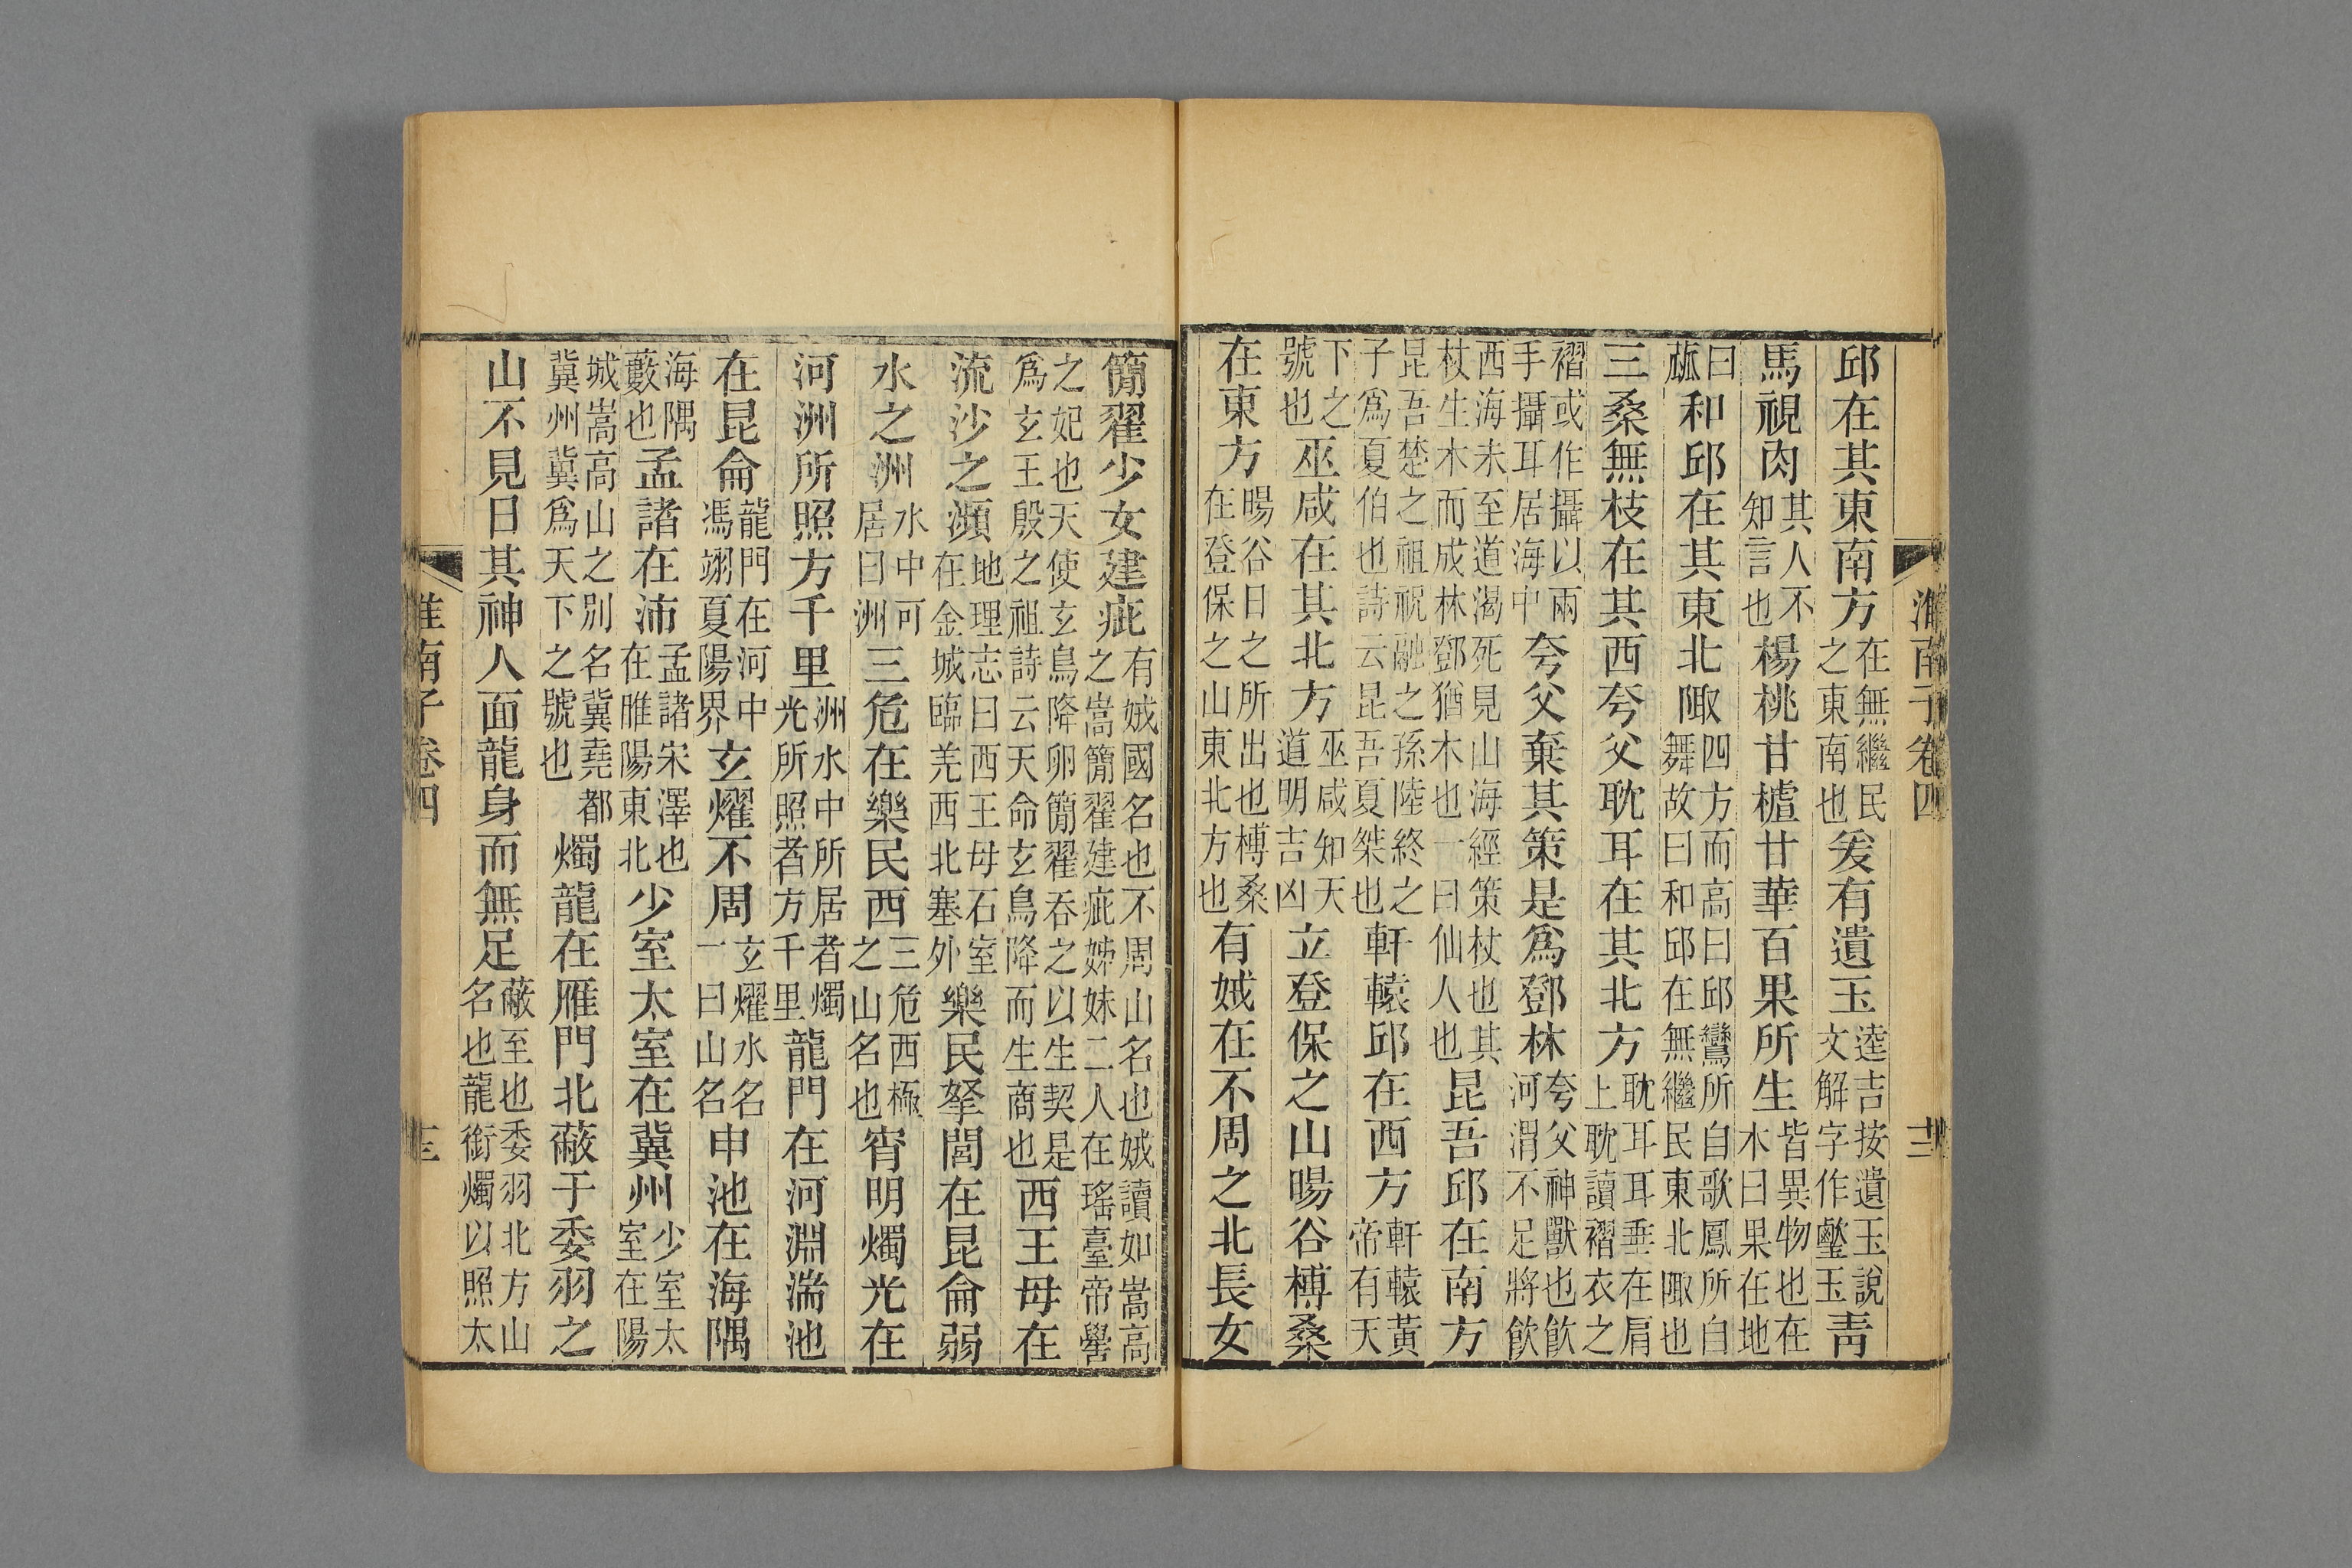 淮南子卷四 十二
邱在其東南方在無繼民之東南也爰有遺玉逵吉按遺玉說文解字作瑿玉青
馬視肉其人不知言也楊桃甘樝甘華百果所生皆異物也在木曰果在地
曰蓏和邱在其東北陬四方而高曰邱鸞所自歌鳳所自舞故曰和邱在無繼民東北陬也
三桑無枝在其西夸父耽耳在其北方耽耳耳垂在肩上耽讀褶衣之
褶或作攝以兩手攝耳居海中夸父棄其策是爲鄧林夸父神獸也飲河渭不足將飲
西海未至道渴死見山海經策杖也其杖生木而成林鄧猶木也一曰仙人也昆吾邱在南方
昆吾楚之祖祝融之孫陸終之子爲夏伯也詩云昆吾夏桀也軒轅邱在西方軒轅黃帝有天
下之號也巫咸在其北方巫咸知天道明吉凶立登保之山暘谷榑桑
在東方暘谷日之所出也榑桑在登保之山東北方也有娀在不周之北長女
簡翟少女建疵有娀國名也不周山名也娀讀如嵩高之嵩簡翟建疵姊妹二人在瑤臺帝嚳
之妃也天使玄鳥降卵簡翟吞之以生契是爲玄王殷之祖詩云天命玄鳥降而生商也西王母在
流沙之瀕地理志曰西王母石室在金城臨羌西北塞外樂民拏閭在昆侖弱
水之洲水中可居曰洲三危在樂民西三危西極之山名也宵明燭光在
河洲所照方千里洲水中所居者燭光所照者方千里龍門在河淵湍池
在昆侖龍門在河中馮翊夏陽界玄燿不周玄燿水名一曰山名申池在海隅
海隅藪也孟諸在沛孟諸宋澤也在睢陽東北少室太室在冀州少室太室在陽
城嵩高山之別名冀堯都冀州冀爲天下之號也燭龍在雁門北蔽于委羽之
山不見日其神人面龍身而無足蔽至也委羽北方山名也龍銜燭以照太
淮南子卷四 十三